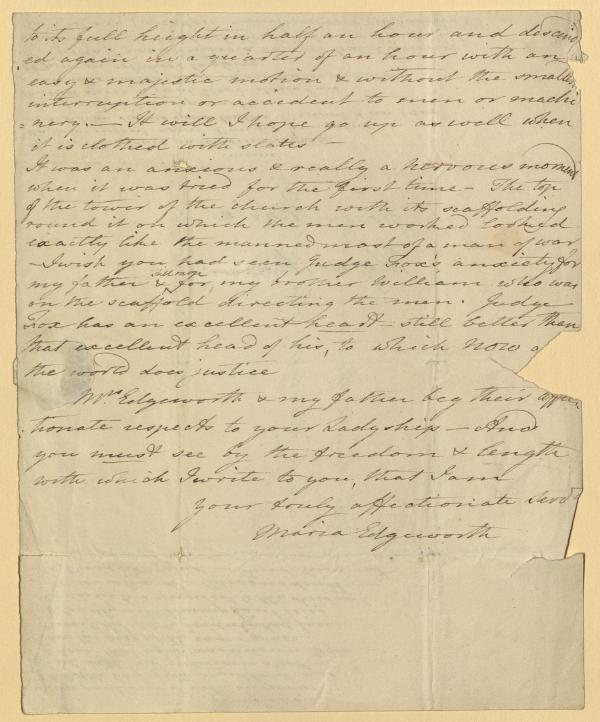 to its full height in half an hour and descend
ed again in a quarter of an hour with an
easy & majestic motion & without the smallest
interruption or accident to men or machi
=nery. — It will I hope go up as well when
it is clothed with slates —
It was an anxious & really a nervous moment
when it was tried for the first time — The top
of the tower of the church with its scaffolding
round it on which the men worked looked
exactly like the manned mast of a man of war
— I wish you had seen Judge Fox's anxiety for
my father & still more for my brother William who was
on the scaffold directing the men. Judge
Fox has an excellent heart — still better than
that excellent head of his, to which now
the world does justice
Mrs. Edgeworth & my father beg their affec
-tionate respects to your Ladyship — And
you must see by the freedom & length
with which I write to you, that I am
your truly affectionate Servt
Maria Edgeworth